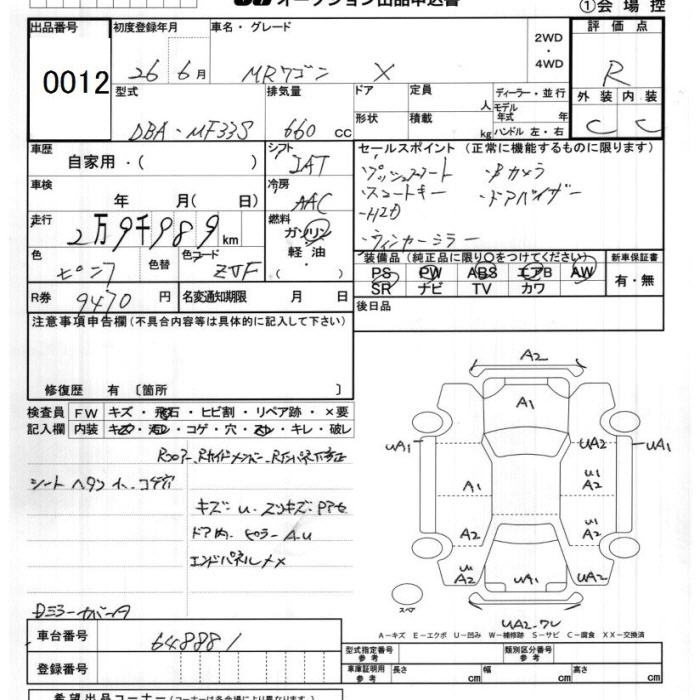 オークション出品申込書
①会場控
出品番号
0012
初度登録年月
26 6月
車名・グレード
MRワゴン X
2WD
・
4WD
評価点
R
型式
DBA-MF33S
排気量
660 cc
ドア
形状
定員
人
積載
kg
ディーラー・並行
モデル
年式 年
ハンドル 左・右
外装 内装
C C
車歴
自家用・( )
シフト
IAT
セールスポイント (正常に機能するものに限ります)
・プッシュスタート ・Bカメラ
・スマートキー ・ドアバイザー
・HID
・ウィンカーミラー
車検
年 月( 日)
冷房
AAC
走行
2万9千989km
燃料
ガソリン
軽油
( )
色
ピンク
色替
色コード
ZVF
装備品 (純正品に限り○をつけてください)
PS PW ABS エアB AW
SR ナビ TV カワ
新車保証書
有・無
R券
9470円
名変通知期限 月 日
後日品
注意事項申告欄 (不具合内容等は具体的に記入して下さい)
修復歴 有 〔箇所 〕
検査員
記入欄
FW キズ・飛石・ヒビ割・リペア跡・×要
内装 キズ・汚レ・コゲ・穴・スレ・キレ・破レ
シート ヘタリ 小 コゲ穴
キズ・U・スリキズ・
ドア内・ピラーA.U
エンドパネル
A2
A1
UA1
UA2
UA1
A1
U1
A2
A2
U1
A2
U1
A2
UA1
UA2
スペア
UA2・ワレ
A-キズ E-エクボ U-凹み W-補修跡 S-サビ C-腐食 XX-交換済
車台番号
648881
登録番号
型式指定番号
参考
類別区分番号
参考
車庫証明用
参考
長さ cm
幅 cm
高さ cm
希望出品コーナー(コーナーは各会場により異なります)